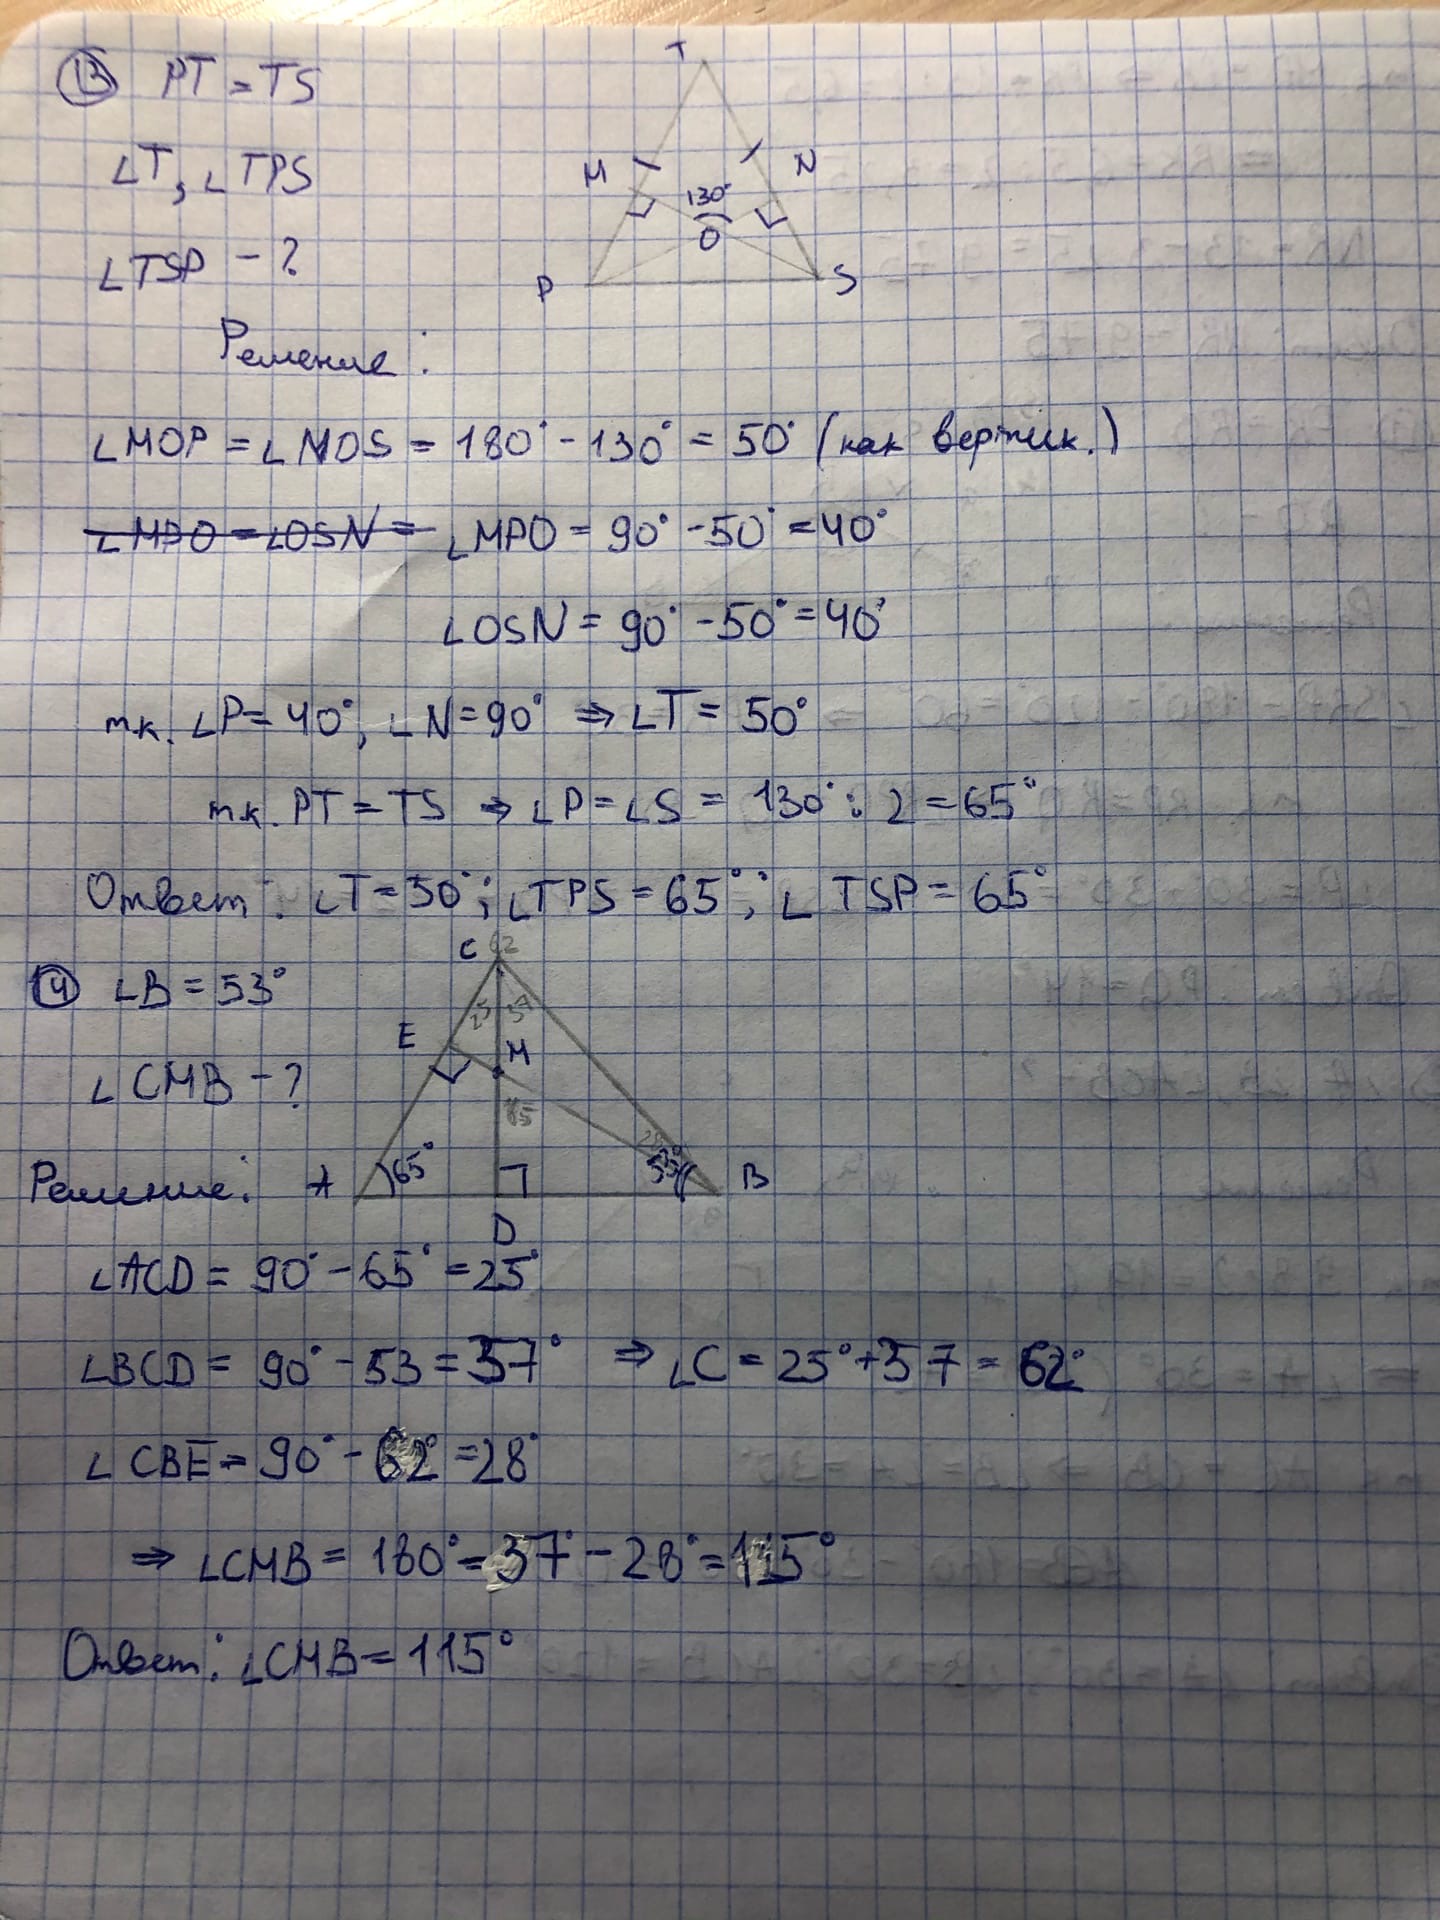 13 PT = TS
∠T, ∠TPS
∠TSP - ?
T
M
N
130°
O
P
S
Решение:
∠MOP = ∠NOS = 180° - 130° = 50° (как вертик.)
∠MPO = ∠OSN = ∠MPO = 90° - 50° = 40°
∠OSN = 90° - 50° = 40°
т.к. ∠P = 40°, ∠N = 90° ⇒ ∠T = 50°
т.к. PT = TS ⇒ ∠P = ∠S = 130° : 2 = 65°
Ответ: ∠T = 50°; ∠TPS = 65°; ∠TSP = 65°
C 62
14 ∠B = 53°
25
E
M
∠CMB - ?
65°
53°
A
B
D
Решение:
∠ACD = 90° - 65° = 25°
∠BCD = 90° - 53 = 37° ⇒ ∠C = 25° + 37 = 62°
∠CBE = 90° - 62° = 28°
⇒ ∠CMB = 180° - 37° - 28° = 115°
Ответ: ∠CMB = 115°